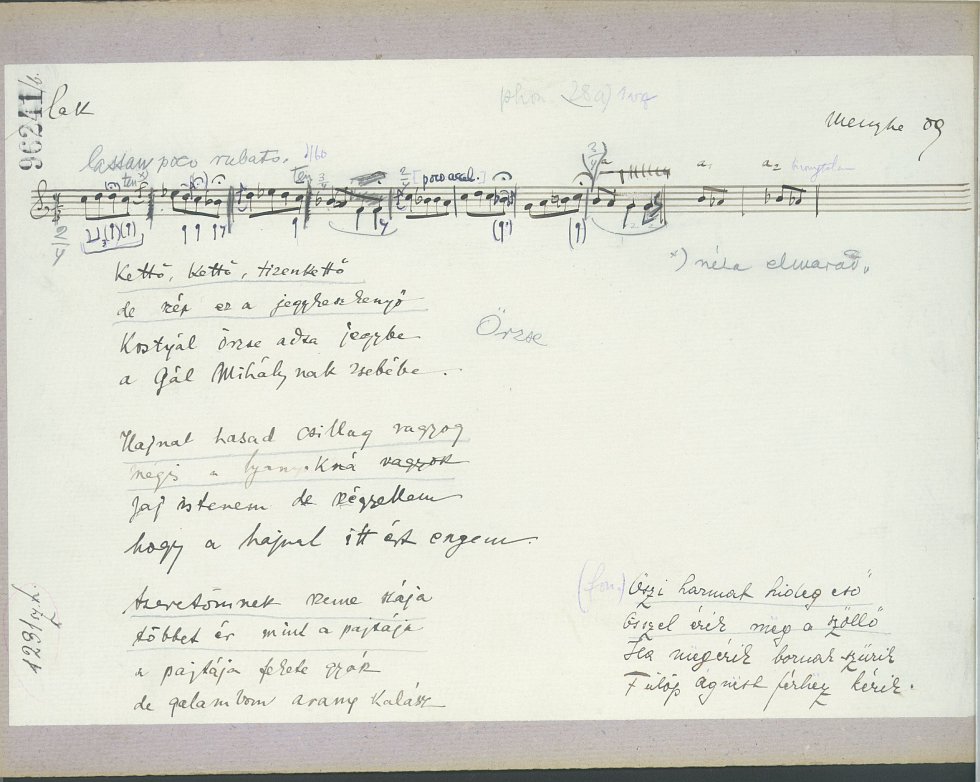 96241/b.
lak
phon 28a)
Menyhe 09
lassan, poco rubato.
ten
ten
[poco accel.]
a1
a2 bizonytalan
*) néha elmarad.
Kettő, kettő, tizenkettő
de szép ez a jegykeszkenyő
Kostyál örzse adta jegybe
a Gál Mihálynak zsebébe.
Örzse
Hajnal hasad csillag ragyog
mégis a lyányokná vagyok
Jaj istenem de
hogy a hajnal itt ért engem.
Szeretőmnek szeme szája
többet ér mint a pajtája
a pajtája fekete gyász
de galambom arany kalász
(fon.) Őszi harmat hideg eső
Ősszel érik meg a szöllő
Ha megérik bornak szűrik
Fülöp ágnest férhez kérik.
1231/gyh.